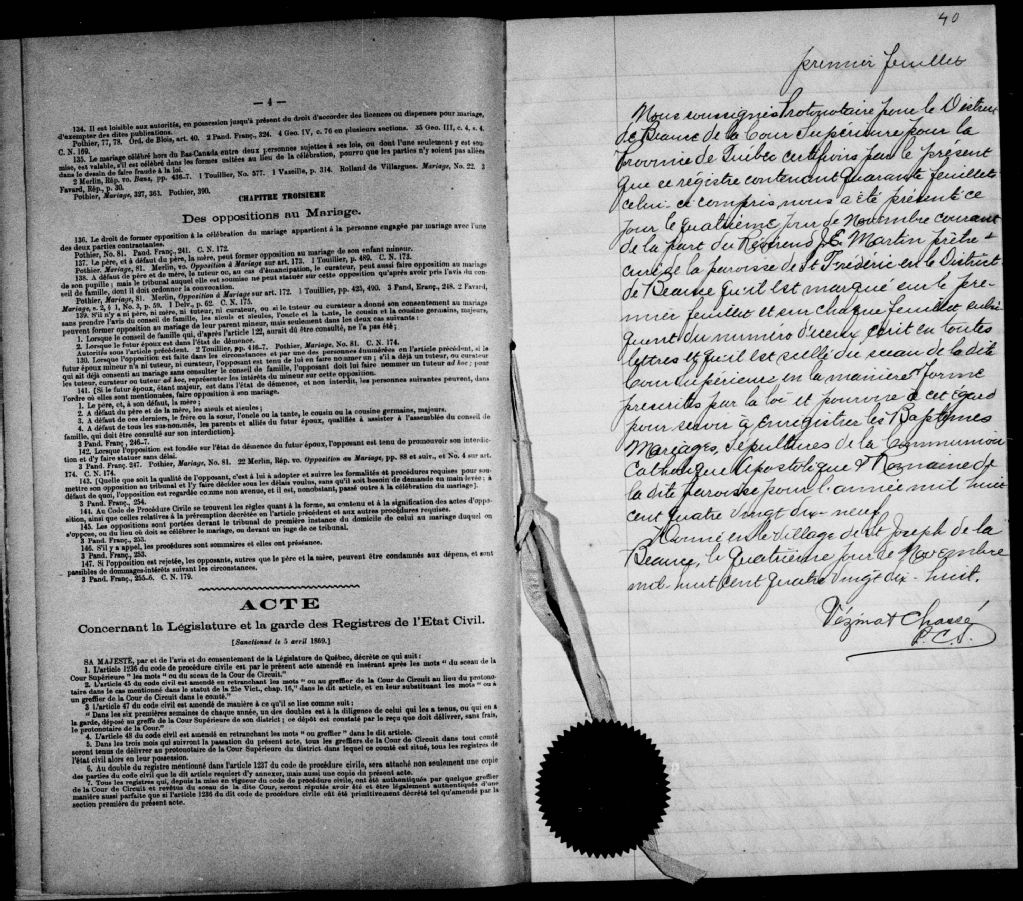 — 4 —
134. Il est loisible aux autorités, en possession jusqu'à présent du droit d'accorder des licences ou dispenses pour mariage,
d'exempter des dites publications.
Pothier, 77, 78. Ord. de Blois, art. 40. 2 Pand. Franç., 324. 4 Geo. IV, c. 76 en plusieurs sections. 35 Geo. III, c. 4, s. 4.
C. N. 169.
135. Le mariage célébré hors du Bas-Canada entre deux personnes sujettes à ses lois, ou dont l'une seulement y est sou-
mise, est valable, s'il est célébré dans les formes usitées au lieu de la célébration, pourvu que les parties n'y soient pas allées
dans le dessein de faire fraude à la loi.
2 Merlin, Rép. vo. Bans, pp. 436-7. 1 Touillier, No. 577. 1 Vazeille, p. 314. Rolland de Villargues. Mariage, No. 22. 3
Favard, Rép., p. 30.
Pothier, Mariage, 327, 363. Pothier, 390.
CHAPITRE TROISIEME
Des oppositions au Mariage.
136. Le droit de former opposition à la célébration du mariage appartient à la personne engagée par mariage avec l'une
des deux parties contractantes.
Pothier, No. 81. Pand. Franç., 241. C. N. 172.
137. Le père, et à défaut du père, la mère, peut former opposition au mariage de son enfant mineur.
Pothier, Mariage, 81. Merlin, vo. Opposition à Mariage sur art. 173. 1 Touillier, p. 489. C. N. 173.
138. A défaut de père et de mère, le tuteur ou, au cas d'émancipation, le curateur, peut aussi faire opposition au mariage
de son pupille; mais le tribunal auquel elle est soumise ne peut statuer sur cette opposition qu'après avoir pris l'avis du con-
seil de famille, dont il doit ordonner la convocation.
Pothier, Mariage, 81. Merlin, Opposition à Mariage sur art. 172. 1 Touillier, pp. 425, 490. 3 Pand. Franç., 248. 2 Favard,
Mariage, s. 2, § 1, No. 3, p. 59. 1 Delv., p. 62. C. N. 175.
139. S'il n'y a ni père, ni mère, ni tuteur, ni curateur, ou si le tuteur ou curateur a donné son consentement au mariage
sans prendre l'avis du conseil de famille, les aïeuls et aïeules, l'oncle et la tante, le cousin et la cousine germains, majeurs,
peuvent former opposition au mariage de leur parent mineur, mais seulement dans les deux cas suivants:
1. Lorsque le conseil de famille qui, d'après l'article 122, aurait dû être consulté, ne l'a pas été;
2. Lorsque le futur époux est dans l'état de démence.
Autorités sous l'article précédent. 2 Touillier, pp. 416-7. Pothier, Mariage, No. 81. C. N. 174.
130. Lorsque l'opposition est faite dans les circonstances et par une des personnes énumérées en l'article précédent, si le
futur époux mineur n'a ni tuteur, ni curateur, l'opposant est tenu de lui en faire nommer un; s'il a déjà un tuteur, ou curateur
qui ait déjà consenti au mariage sans consulter le conseil de famille, l'opposant doit lui faire nommer un tuteur ad hoc; pour
les tuteur, curateur ou tuteur ad hoc, représenter les intérêts du mineur sur cette opposition.
141. [Si le futur époux, étant majeur, est dans l'état de démence, et non interdit, les personnes suivantes peuvent, dans
l'ordre où elles sont mentionnées, faire opposition à son mariage.
1. Le père, et, à son défaut, la mère;
2. A défaut du père et de la mère, les aïeuls et aïeules;
3. A défaut de ces derniers, le frère ou la sœur, l'oncle ou la tante, le cousin ou la cousine germains, majeurs.
4. A défaut de tous les sus-nommés, les parents et alliés du futur époux, qualifiés à assister à l'assemblée du conseil de
famille, qui doit être consulté sur son interdiction].
3 Pand. Franç., 246-7.
142. Lorsque l'opposition est fondée sur l'état de démence du futur époux, l'opposant est tenu de promouvoir son interdic-
tion et d'y faire statuer sans délai.
3 Pand. Franç. 247. Pothier, Mariage, No. 81. 22 Merlin, Rép. vo. Opposition au Mariage, pp. 88 et suiv., et No. 4 sur art.
174. C. N. 174.
143. [Quelle que soit la qualité de l'opposant, c'est à lui à adopter et suivre les formalités et procédures requises pour sou-
mettre son opposition au tribunal et l'y faire décider sous les délais voulus, sans qu'il soit besoin de demande en main-levée; à
défaut de quoi, l'opposition est regardée comme non avenue, et il est, nonobstant, passé outre à la célébration du mariage].
3 Pand. Franç., 254.
144. Au Code de Procédure Civile se trouvent les règles quant à la forme, au contenu et à la signification des actes d'oppo-
sition, ainsi que celles relatives à la préremption décrétée en l'article précédent et aux autres procédures requises.
145. Les oppositions sont portées devant le tribunal de première instance du domicile de celui au mariage duquel on
s'oppose, ou du lieu où doit se célébrer le mariage, ou devant un juge de ce tribunal.
3 Pand. Franç., 253.
146. S'il y a appel, les procédures sont sommaires et elles ont préséance.
3 Pand. Franç., 253.
147. Si l'opposition est rejetée, les opposants, autres que le père et la mère, peuvent être condamnés aux dépens, et sont
passibles de dommages-intérêts suivant les circonstances.
3 Pand. Franç., 255-6. C. N. 179.
ACTE
Concernant la Législature et la garde des Registres de l'Etat Civil.
[Sanctionné le 5 avril 1869.]
SA MAJESTÉ, par et de l'avis et du consentement de la Législature de Québec, décrète ce qui suit:
1. L'article 1236 du code de procédure civile est par le présent acte amendé en insérant après les mots "du sceau de la
Cour Supérieure" les mots "ou du sceau de la Cour de Circuit."
2. L'article 45 du code civil est amendé en retranchant les mots "ou au greffier de la Cour de Circuit au lieu du protono-
taire dans le cas mentionné dans le statut de la 25e Vict., chap. 16," dans le dit article, et en leur substituant les mots "ou à
un greffier de la Cour de Circuit dans le comté."
3 L'article 47 du code civil est amendé de manière à ce qu'il se lise comme suit:
"Dans les six premières semaines de chaque année, un des doubles est à la diligence de celui qui les a tenus, ou qui en a
la garde, déposé au greffe de la Cour Supérieure de son district; ce dépôt est constaté par le reçu que doit délivrer, sans frais,
le protonotaire de la Cour."
4. L'article 48 du code civil est amendé en retranchant les mots "ou greffier" dans le dit article.
5. Dans les trois mois qui suivront la passation du présent acte, tous les greffiers de la Cour de Circuit dans tout comté
seront tenus de délivrer au protonotaire de la Cour Supérieure du district dans lequel ce comté est situé, tous les registres de
l'état civil alors en leur possession.
6. Au double du registre mentionné dans l'article 1237 du code de procédure civile, sera attaché non seulement une copie
des parties du code civile que le dit article requiert d'y annexer, mais aussi une copie du présent acte.
7. Tous les registres qui, depuis la mise en vigueur du code de procédure civile, ont été authentiqués par quelque greffier
de la Cour de Circuit et revêtus du sceau de la dite Cour, seront réputés avoir été et être légalement authentiqués d'une
manière aussi parfaite que si l'article 1236 du dit code de procédure civile eût été primitivement décrété tel qu'amendé par la
section première du présent acte.
40
premier feuillet
Nous soussignés Protonotaire pour le District
de Beauce de la Cour Supérieure pour la
province de Québec certifions par le présent
que ce régistre contenant quarante feuillets
celui-ci compris, nous a été présenté ce
jour le quatrième jour de Novembre courant
de la part du Révérend J. E. Martin prêtre
curé de la paroisse de St Frédéric en le District
de Beauce qu'il est marqué sur le pre-
mier feuillet et sur chaque feuillet subsé-
quent du numéro d'iceux écrit en toutes
lettres et qu'il est scellé du sceau de la dite
Cour Supérieure en la manière & forme
prescrites par la loi et pourvue à cet égard
pour servir à Enregistrer les Baptêmes
Mariages, Sépultures de la Communion
Catholique Apostolique & Romaine de
la dite paroisse pour l'année mil huit
cent quatre vingt dix-neuf.
Donné en le village de St Joseph de la
Beauce, le quatrième jour de Novembre
mil-huit cent quatre vingt dix-huit.
Vézina & Chassé
P. C. S.